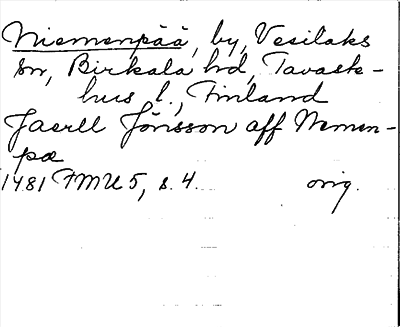 Niemenpää, by, Vesilaks
sn, Birkala hd, Tavaste-
hus l., Finland
Jaerll Jönsson aff Nemen-
pæ
1481 FMU 5, s. 4. orig.